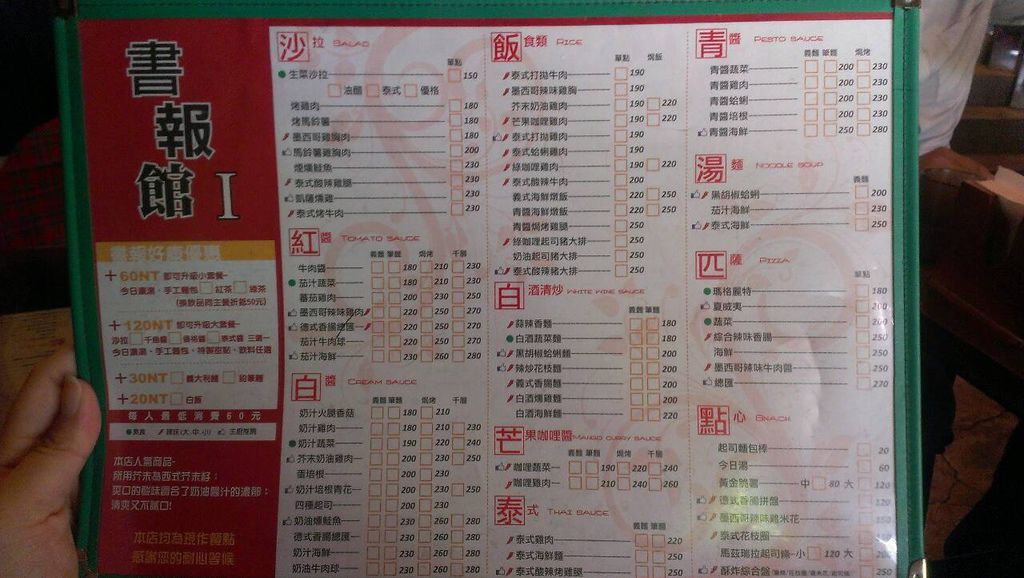 書報館 I
+60NT 即可升級小套餐~
今日濃湯、手工麵包 紅茶 綠茶
+120NT 即可升級大套餐~
今日濃湯、手工麵包、特製甜點、飲料任選
+30NT 義大利麵 鉛筆麵
+20NT 白飯
每人最低消費60元
本店人氣商品-
所用芥末為西式芥末籽;
清爽又不膩口!
本店均為現作餐點
感謝您的耐心等候
沙拉 SALAD
單點
生菜沙拉 150
油醋 泰式 優格
烤雞肉 180
烤馬鈴薯 180
墨西哥雞胸肉 180
馬鈴薯雞胸肉 200
煙燻鮭魚 230
泰式酸辣雞腿 230
凱薩燻雞 230
泰式烤牛肉 230
紅醬 TOMATO SAUCE
義麵 筆麵 焗烤 千層
牛肉醬 180 210 230
茄汁蔬菜 180 210 230
蕃茄雞肉 200 230 250
墨西哥辣味雞肉 200 230 250
德式香腸總匯 220 250 270
茄汁牛肉球 220 250 270
茄汁海鮮 230 260 280
白醬 CREAM SAUCE
義麵 筆麵 焗烤 千層
奶汁火腿香菇 180 210
奶汁雞肉 180 210 230
奶汁蔬菜 190 220 240
芥末奶油雞肉 200 230 250
蛋培根 200 230
奶汁培根青花 200 230 250
四種起司 210
奶油燻鮭魚 230 260 280
德式香腸總匯 230 260 280
奶汁海鮮 230 260 280
奶油牛肉球 230 260 280
飯食類 RICE
單點 焗飯
泰式打拋牛肉 190
墨西哥辣味雞胸 190
芥末奶油雞肉 190 220
芒果咖哩雞肉 190 220
泰式打拋雞肉 190
泰式蛤蜊雞肉 190
綠咖哩雞肉 190 220
泰式酸辣牛肉 200
義式海鮮燉飯 220 250
青醬海鮮燉飯 220 250
青醬焗烤雞腿 250
綠咖哩起司豬大排 250
奶油起司豬大排 250
泰式酸辣豬大排 250
白酒清炒 WHITE WINE SAUCE
義麵 筆麵
蒜辣香麵 180
白酒蔬菜麵 180
黑胡椒蛤蜊麵 200
辣炒花枝麵 200
義式香腸麵 200
白酒燻雞麵 200
白酒海鮮麵 220
芒果咖哩醬 MANGO CURRY SAUCE
義麵 筆麵 焗烤 千層
咖哩蔬菜 190 220 240
咖哩雞肉 210 240 260
泰式 THAI SAUCE
義麵 筆麵
泰式雞肉 220
泰式海鮮麵 250
泰式酸辣烤雞腿 250
青醬 PESTO SAUCE
義麵 筆麵 焗烤
青醬蔬菜 200 230
青醬雞肉 200 230
青醬蛤蜊 200 230
青醬培根 200 230
青醬海鮮 250 280
湯麵 NOODLE SOUP
義麵
黑胡椒蛤蜊 200
茄汁海鮮 230
泰式海鮮 250
匹薩 PIZZA
單點
瑪格麗特 180
夏威夷 200
蔬菜 200
綜合辣味香腸 250
海鮮 250
墨西哥辣味牛肉醬 250
總匯 270
點心 SNACK
起司麵包棒 20
今日湯 60
黃金脆薯 中 80 大 120
德式香腸拼盤 120
墨西哥辣味雞米花 150
泰式花枝圈 150
馬茲瑞拉起司條-小 120 大 200
酥炸綜合盤 250